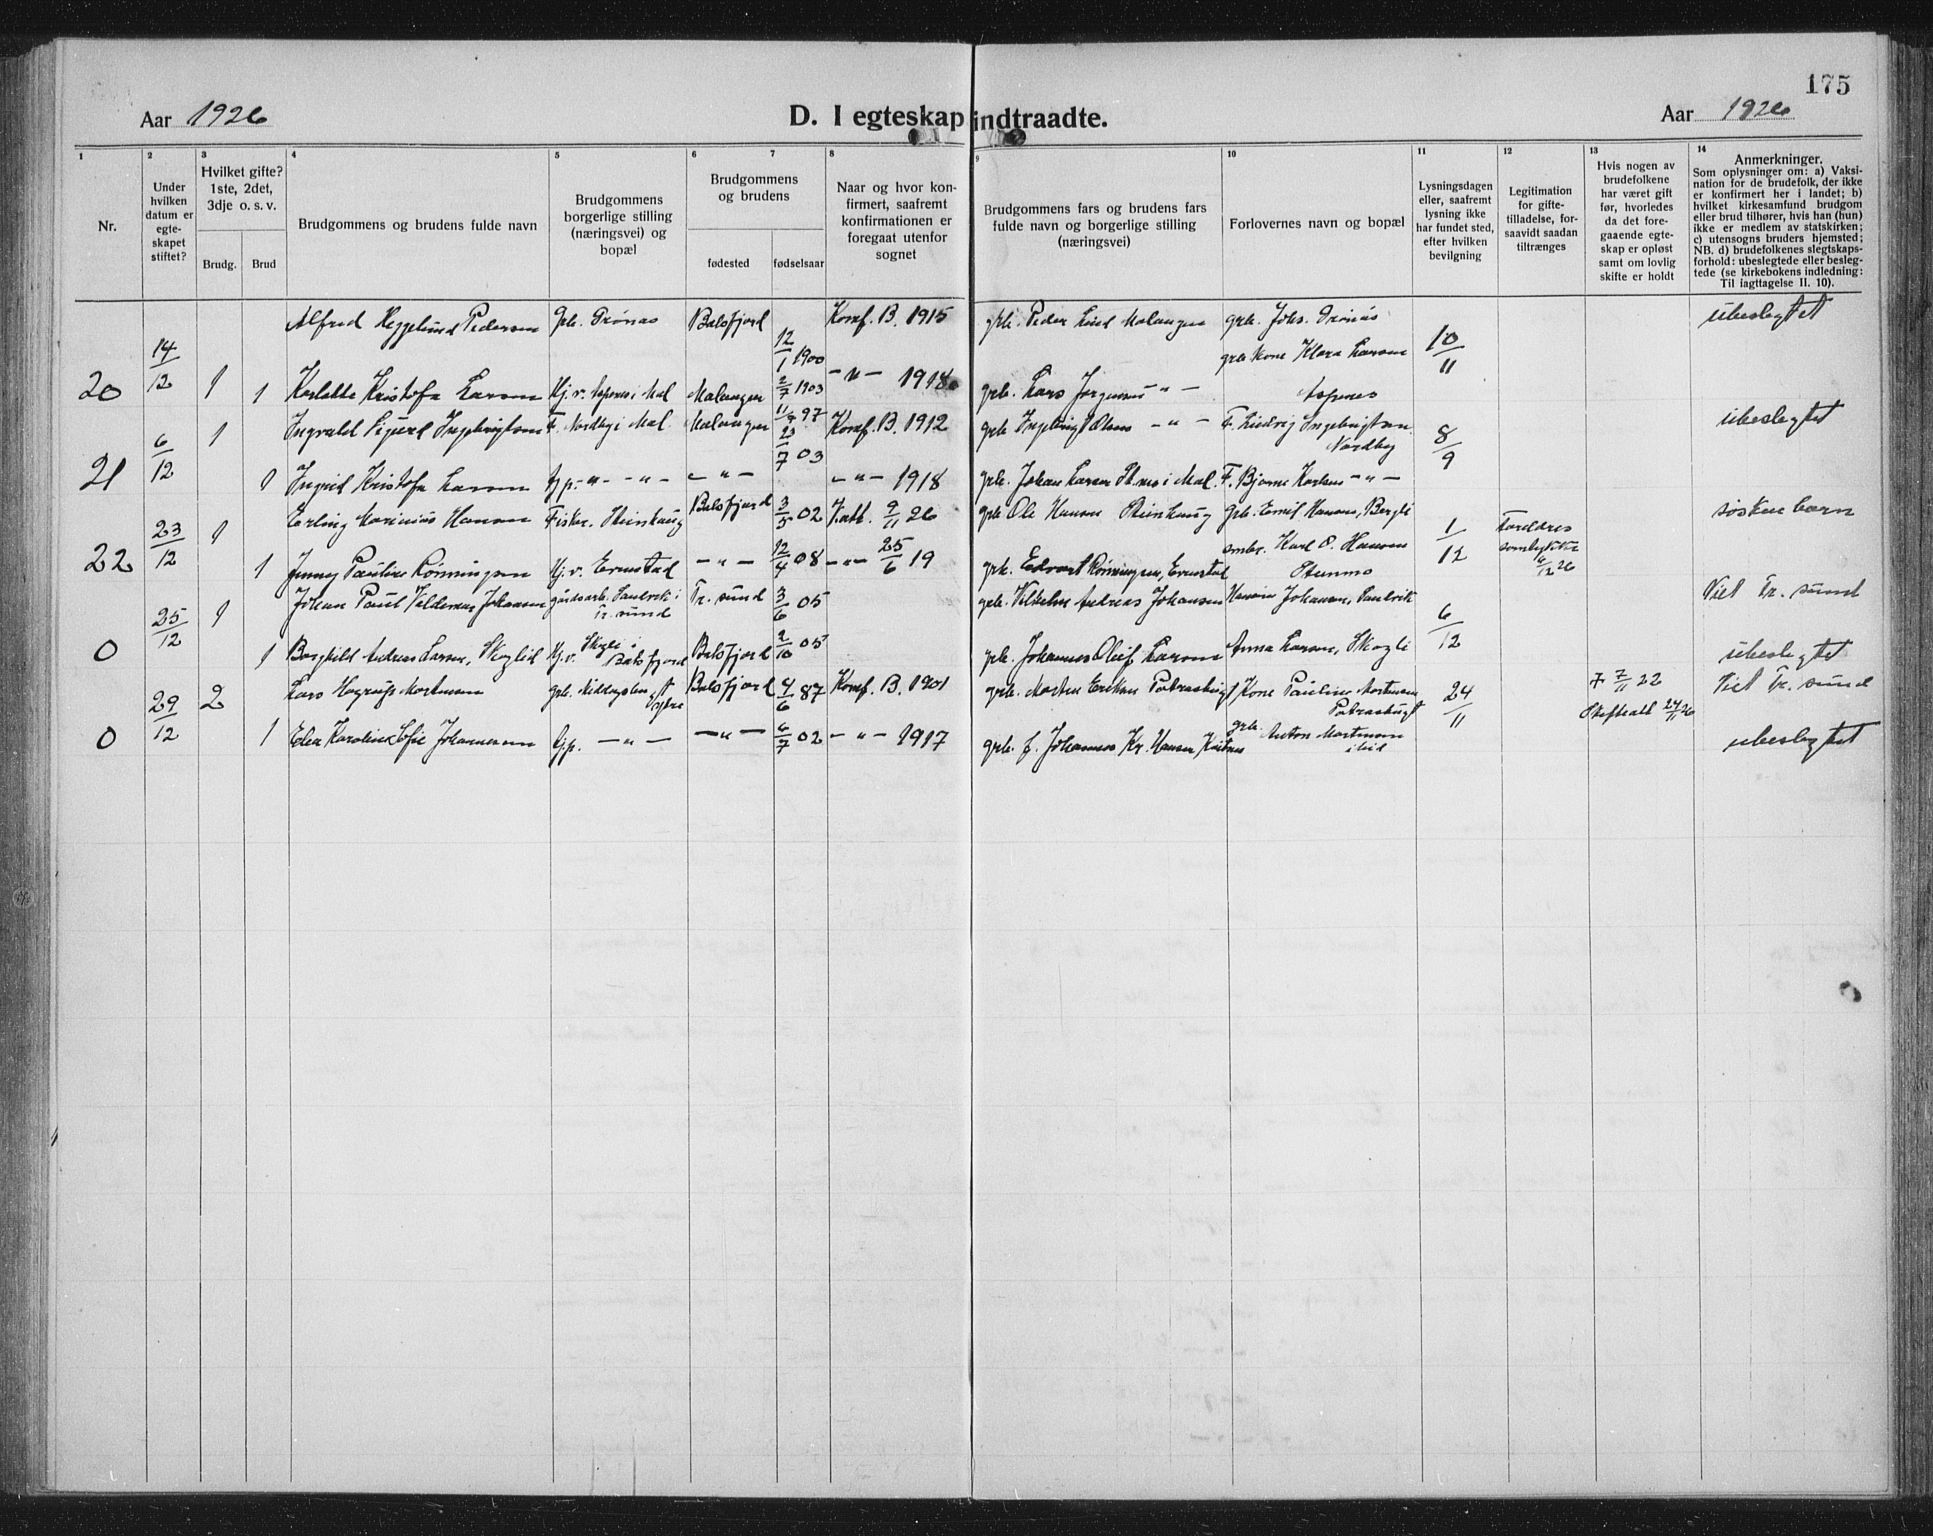 175
Aar 1926
D. I egteskap indtraadte.
Aar 1926
1 2 3 4 5 6 7 8 9 10 11 12 13 14
Nr.
Under hvilken datum er egte-skapet stiftet?
Hvilket gifte? 1ste, 2det, 3dje o. s. v.
Brudg. Brud
Brudgommens og brudens fulde navn
Brudgommens borgerlige stilling (næringsvei) og bopæl
Brudgommens og brudens
fødested fødselsaar
Naar og hvor kon-firmert, saafremt konfirmationen er foregaat utenfor sognet
Brudgommens fars og brudens fars fulde navn og borgerlige stilling (næringsvei)
Forlovernes navn og bopæl
Lysningsdagen eller, saafremt lysning ikke har fundet sted, efter hvilken bevilgning
Legitimation for gifte-tilladelse, for-saavidt saadan tiltrænges
Hvis nogen av brudefolkene har været gift før, hvorledes da det fore-gaaende egte-skap er opløst samt om lovlig skifte er holdt
Anmerkninger.
Som oplysninger om: a) Vaksi-nation for de brudefolk, der ikke er konfirmert her i landet; b) hvilket kirkesamfund brudgom eller brud tilhører, hvis han (hun) ikke er medlem av statskirken; c) utensogns bruders hjemsted; NB. d) brudefolkenes slegtskaps-forhold: ubeslegtede eller beslegtede (se kirkebokens indledning: Til iagttagelse II. 10).
Alfred Heggelund Pedersen Gbr. Grønås Balsfjord 12/1 1900 Konf. B. 1915 grb. Peder Lind Malangen grb. Johs. Grønås ubeslegtet
20 14/12 1 1 Kristofa Larsen Hj. v. Aspenes i Mal Malangen 2/7 1903 -"- 1918 grb. Lars Jørgensen -"- grb. kone Klara Larsen Aspenes 10/11
Ingvald Sigurd Ingebrigtsen F. Nordby i Mal. Malangen 97 Konf. B. 1912 grb. Ingebrigt Olsen -"- F. Ludvig Ingebrigtsen Nordby ubeslegtet
21 6/12 1 1 Ingrid Kristofa Larsen tjp. -"- -"- -"- 2/7 03 -"- 1918 grb. Johan Larsen i Mal. F. Bjarne Karlsen -"- 8/9
Erling Marinius Hansen Fisker. Steinhaug Balsfjord 3/5 02 Katt. 9/11 26 grb. Ole Hansen Steinhaug Grb. Emil Hansen, Bergli søskenbarn
22 23/12 1 1 Jenny Pauline Rønningsen Hj. v. Evenstad -"- 12/4 08 -"- 25/6 19 grb. Edvart Rønningsen, Evenstad Karl O. Hansen Stenmo 1/12 Foreldres samtykke
Johan Paul Johansen gårdsarb. Sandvik i Tr. sund Tr. sund 3/6 05 grb. Vilhelm Andreas Johansen Johansen, Sandvik Viet Tr. sund
0 25/12 1 1 Borghild Andrea Larsen, Skoglid Hj. v. Skogli i Balsfjord Balsfjord 2/10 05 grb. Johannes Oluf Larsen Anna Larsen, Skogli 6/12 ubeslegtet
Lars Mortensen grb. Balsfjord 4/6 87 Konf. B. 1901 grb. Morten Eriksen Kone Pauline Mortensen 7/11 22 Viet Tr. sund
0 29/12 2 1 Johannessen tjp. -"- -"- 6/7 02 -"- 1917 grb. f. Johannes Kr. Hansen grb. Anton Mortensen ibid 24/11 Skifteatt 24/11 26 ubeslegtet